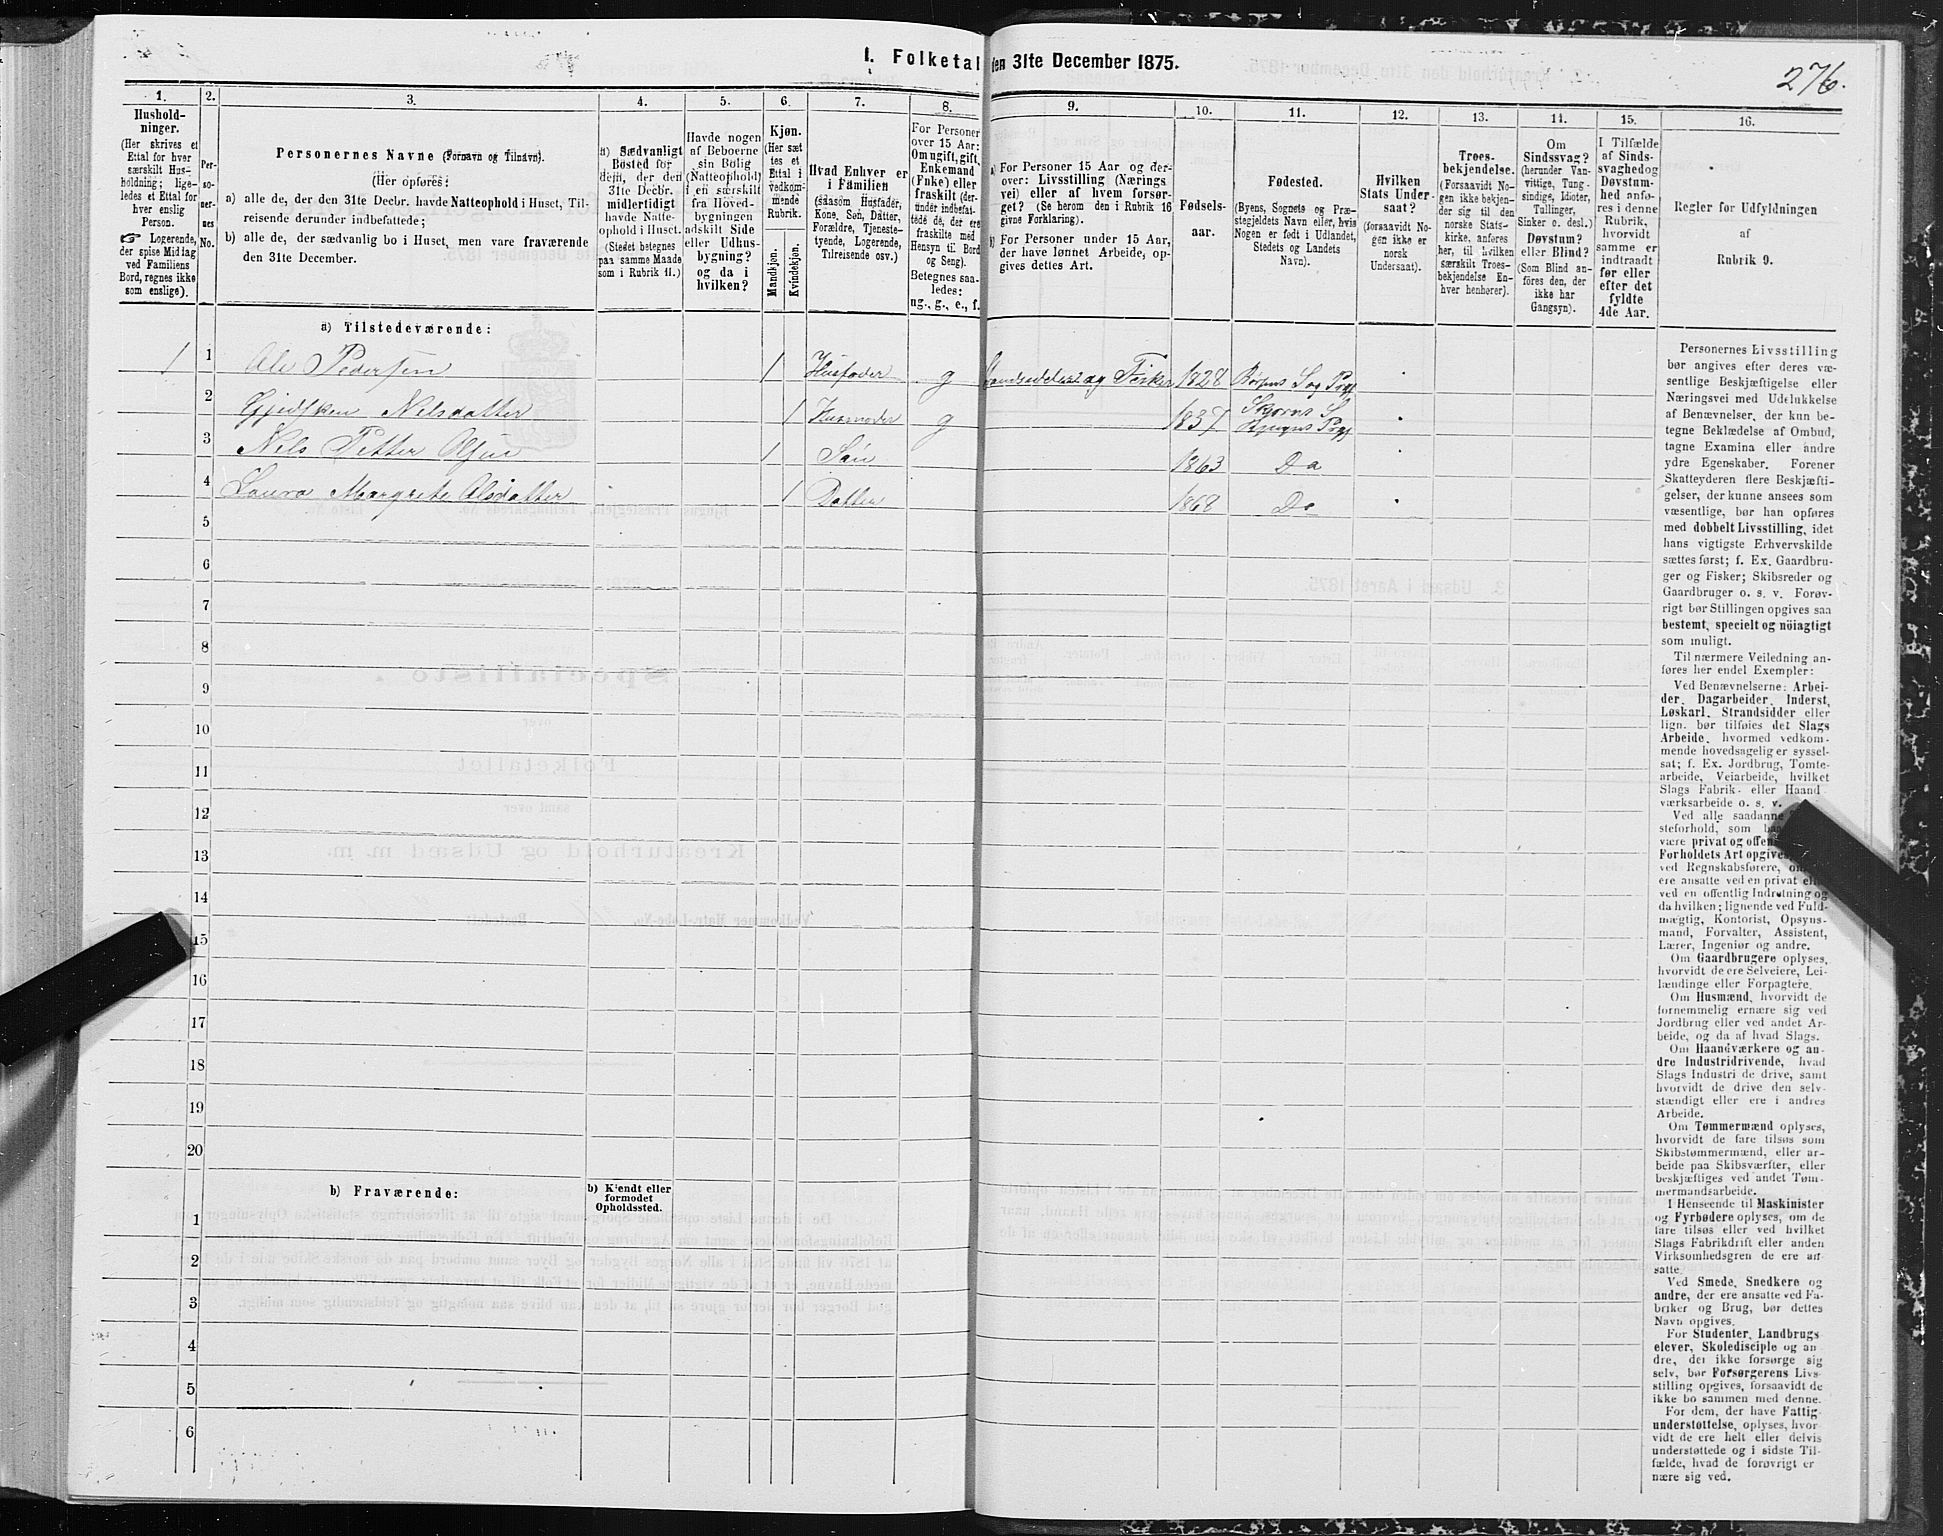 I. Folketal den 31te December 1875.
276.
1.
Hushold-
ninger.
(Her skrives et
Ettal for hver
særskilt Hus-
holdning; lige-
ledes et Ettal for
hver enslig
Person.
☞ Logerende,
der spise Middag
ved Familiens
Bord, regnes ikke
som enslige).
2.
Per-
so-
ner-
nes
No.
3.
Personernes Navne (Fornavn og Tilnavn).
(Her opføres:
a) alle de, der den 31te Decbr. havde Natteophold i Huset, Til-
reisende derunder indbefattede;
b) alle de, der sædvanlig bo i Huset, men vare fraværende
den 31te December.
4.
a) Sædvanligt
Bosted for
dem, der den
31te Decbr.
midlertidigt
havde Natte-
ophold i Huset.
(Stedet betegnes
paa samme Maade
som i Rubrik 11.)
5.
Havde nogen
af Beboerne
sin Bolig
(Natteophold)
i en særskilt
fra Hoved-
bygningen
adskilt Side
eller Udhus-
bygning?
og da i
hvilken?
6.
Kjøn.
(Her sæt
tes et
Ettal i
vedkom-
mende
Rubrik.
Mandkjøn.
Kvindekjøn.
7.
Hvad Enhver er
i Familien
(saasom Husfader,
Kone, Søn, Datter,
Forældre, Tjeneste-
tyende, Logerende,
Tilreisende osv.)
8.
For Personer
over 15 Aar:
Om ugift, gift,
Enkemand
(Enke) eller
fraskilt (der-
under indbefat-
tede de, der ere
fraskilte med
Hensyn til Bord
og Seng).
Betegnes saa-
ledes:
ug., g., e., f.
9.
a) For Personer 15 Aar og der-
over: Livsstilling (Nærings
vei) eller af hvem forsør-
get? (Se herom den i Rubrik 16
givne Forklaring).
b) For Personer under 15 Aar,
der have lønnet Arbeide, op-
gives dettes Art.
10.
Fødsels-
aar.
11.
Fødested.
(Byens, Sognets og Præ-
stegjeldets Navn eller, hvis
Nogen er født i Udlandet,
Stedets og Landets
Navn).
12.
Hvilken
Stats Under-
saat?
(forsaavidt No-
gen ikke er
norsk
Undersaat).
13.
Troes-
bekjendelse.
(Forsaavidt No-
gen ikke bekjen-
der sig til den
norske Stats-
kirke, anføres
her, til hvilken
særskilt Troes-
bekjendelse En-
hver henhører).
14.
Om
Sindssvag?
(herunder Van-
vittige, Tung-
sindige, Idioter,
Tullinger,
Sinker o. desl.)
Døvstum?
eller Blind?
(Som Blind an-
føres den, der
ikke har
Gangsyn).
15.
I Tilfælde
af Sinds-
svaghed og
Døvstum-
hed anfø-
res i denne
Rubrik,
hvorvidt
samme er
indtraadt
før eller
efter det
fyldte
4de Aar.
16.
Regler for Udfyldningen
af
Rubrik 9.
a) Tilstedeværende:
1 1 Ole Pedersen 1 Husfader g og Fisker 1828
2 Gjedsken Nilsdatter 1 Husmoder g 1837
3 Nils Petter Olsen 1 Søn 1863 Do
4 Laura Margrete Olsdatter 1 Datter 1868 Do
5
6
7
8
9
10
11
12
13
14
15
16
17
18
19
20
b) Fraværende:
b) Kjendt eller
formodet
Opholdssted.
1
2
3
4
5
6
Personernes Livsstilling
bør angives efter deres væ-
sentlige Beskjæftigelse eller
Næringsvei med Udelukkelse
af Benævnelser, der kun be-
tegne Beklædelse af Ombud,
tagne Examina eller andre
ydre Egenskaber. Forener
Skatteyderen flere Beskjæfti-
gelser, der kunne ansees som
væsentlige, bør han opføres
med dobbelt Livsstilling, idet
hans vigtigste Erhvervskilde
sættes først; f. Ex. Gaardbru-
ger og Fisker; Skibsreder og
Gaardbruger o. s. v. Forøv-
rigt bør Stillingen opgives saa
bestemt, specielt og nöiagtigt
som muligt.
Til nærmere Veiledning an-
føres her endel Exempler:
Ved Benævnelserne: Arbei-
der, Dagarbeider, Inderst,
Løskarl, Strandsidder eller
lign. bør tilføies det Slags
Arbeide, hvormed vedkom-
mende hovedsagelig er syssel-
sat; f. Ex. Jordbrug, Tomte-
arbeide, Veiarbeide, hvilket
Slags Fabrik- eller Haand
værksarbeide o. s. v.
Ved alle saadanne
steforhold, som
være privat og
Forholdets Art opgives,
ved Regnskabsførere,
ere ansatte ved en privat
ved en offentlig Indretning og
da hvilken; lignende ved Fuld-
mægtig, Kontorist, Opsyns-
mand, Forvalter, Assistent,
Lærer, Ingeniør og andre.
Om Gaardbrugere oplyses,
hvorvidt de ere Selveiere, Lei-
lændinge eller Forpagtere.
Om Husmænd, hvorvidt de
fornemmelig ernære sig ved
Jordbrug eller ved andet Ar-
beide, og da af hvad Slags.
Om Haandværkere og an-
dre Industridrivende, hvad
Slags Industri de drive, samt
hvorvidt de drive den selv-
stændigt eller ere i andres
Arbeide.
Om Tømmermænd oplyses,
hvorvidt de fare tilsøs som
Skibstømmermænd, eller ar-
beide paa Skibsværfter, eller
beskjæftiges ved andet Tøm-
mermandsarbeide.
I Henseende til Maskinister
og Fyrbødere oplyses, om de
fare tilsøs eller ved hvilket
Slags Fabrikdrift eller anden
Virksomhedsgren de ere an-
satte.
Ved Smede, Snedkere og
andre, der ere ansatte ved Fa-
briker og Brug, bør dettes
Navn opgives.
For Studenter, Landbrugs
elever, Skoledisciple og an
dre, der ikke forsørge sig
selv, bør Forsørgerens Livs-
stilling opgives, forsaavidt de
ikke bo sammen med denne.
For dem, der have Fattig-
understøttelse, oplyses, hvor-
vidt de ere helt eller delvis
understøttede og i sidste Til-
fælde, hvad de forøvrigt er
nære sig ved.